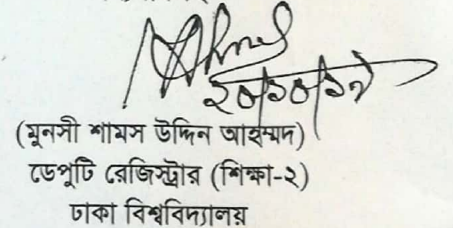 ২০/১০/১৯
(মুনসী শামস উদ্দিন আহম্মদ)
ডেপুটি রেজিস্ট্রার (শিক্ষা-২)
ঢাকা বিশ্ববিদ্যালয়